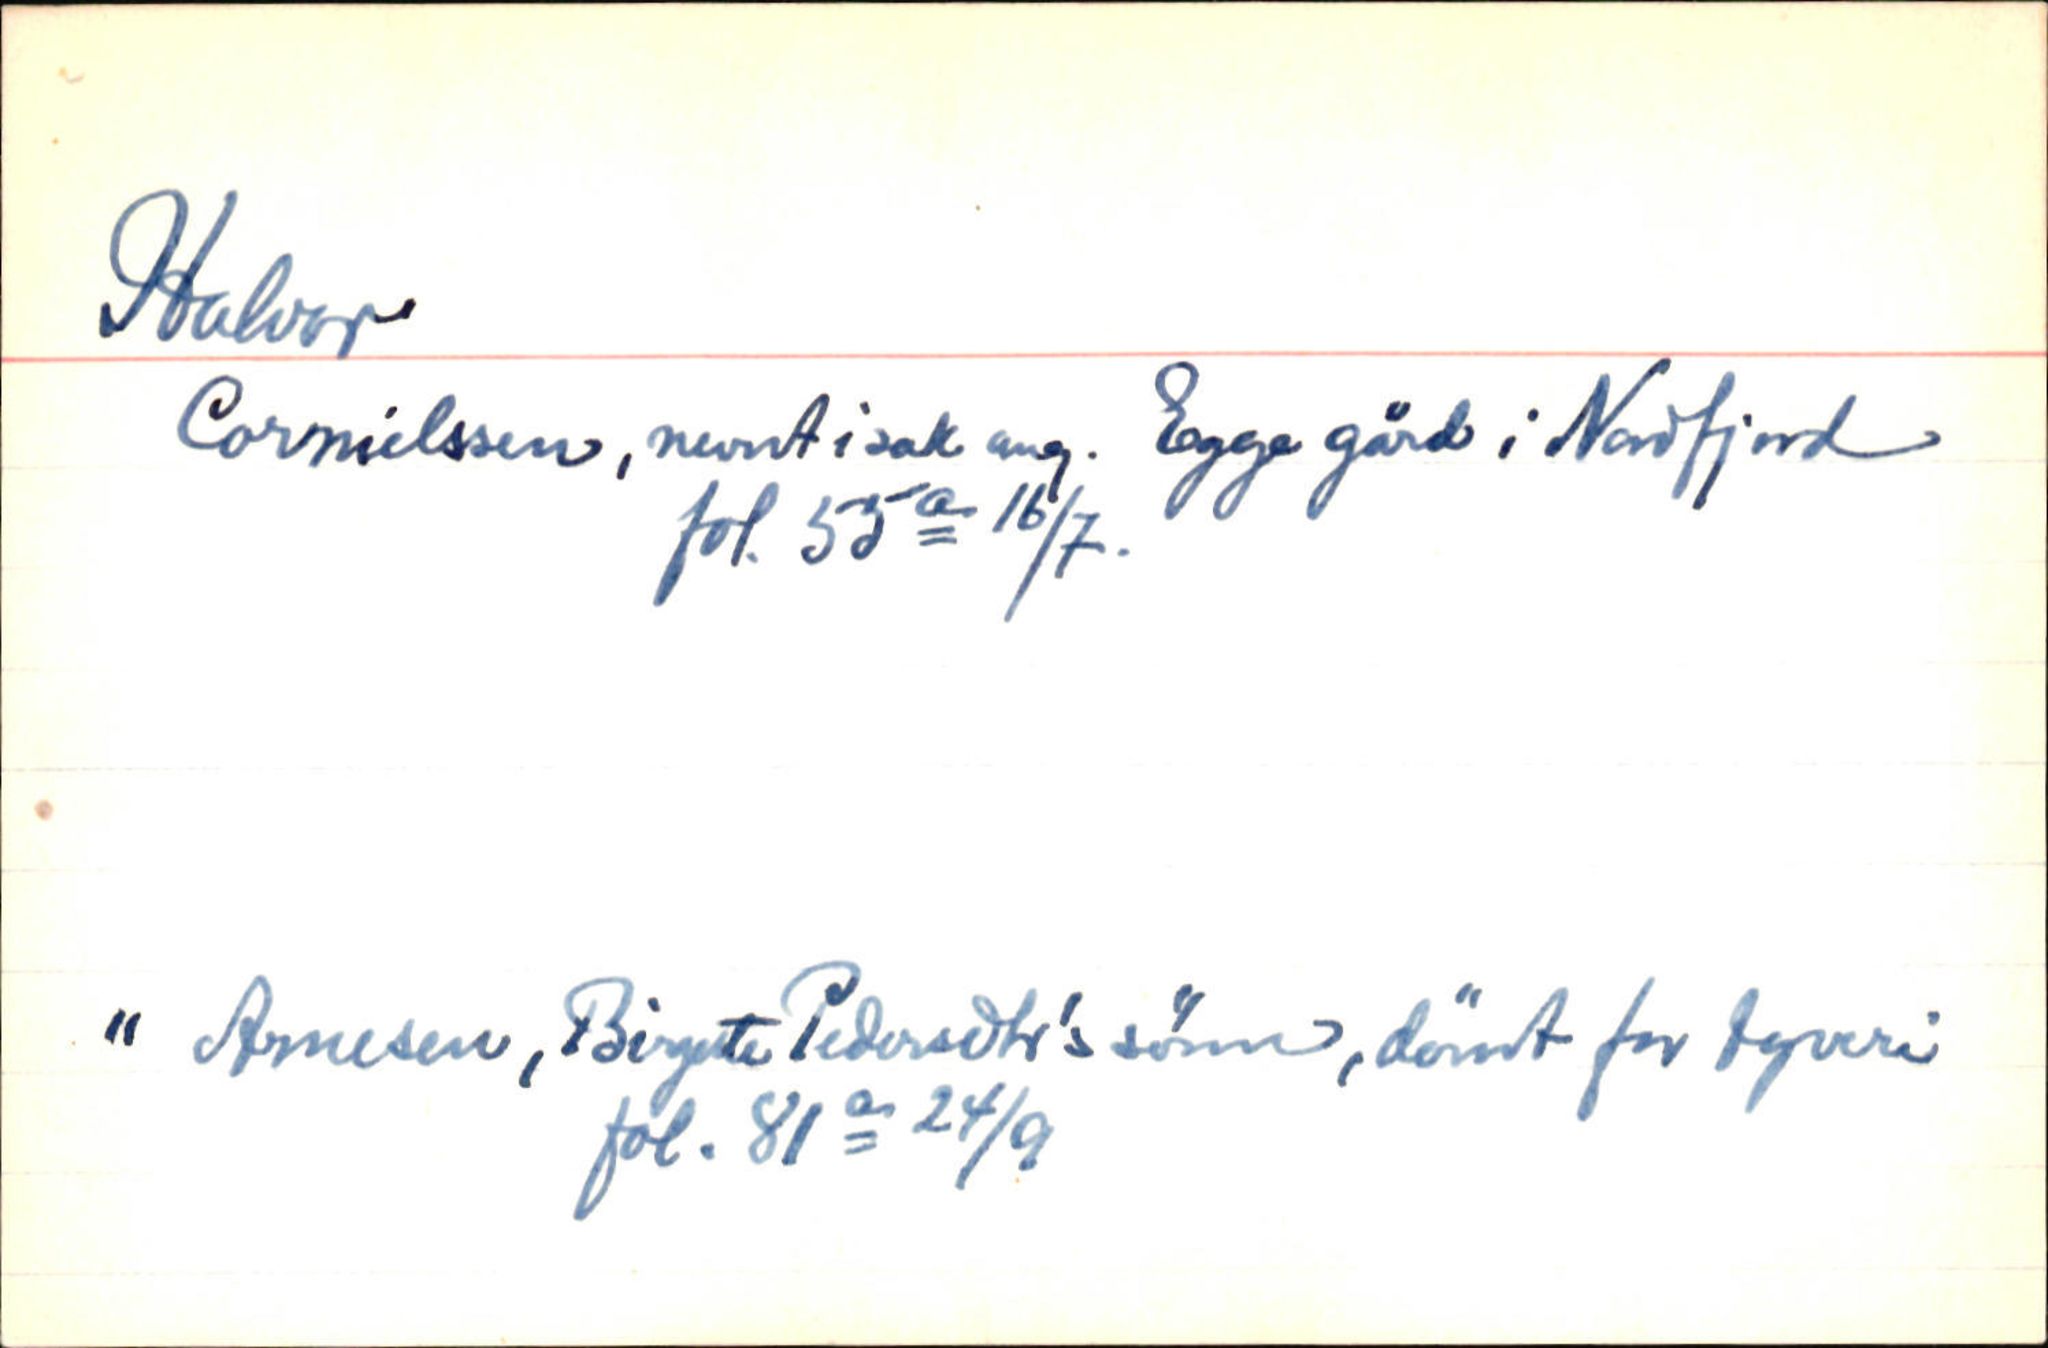 Halvor
Cornielssen, nevnt i sak ang. Egge gård i Nordfjord
fol. 55a 16/7.
" Arnesen, Birgete Pedersdtr's sönn, dömt for tyveri
fol. 81a 24/9